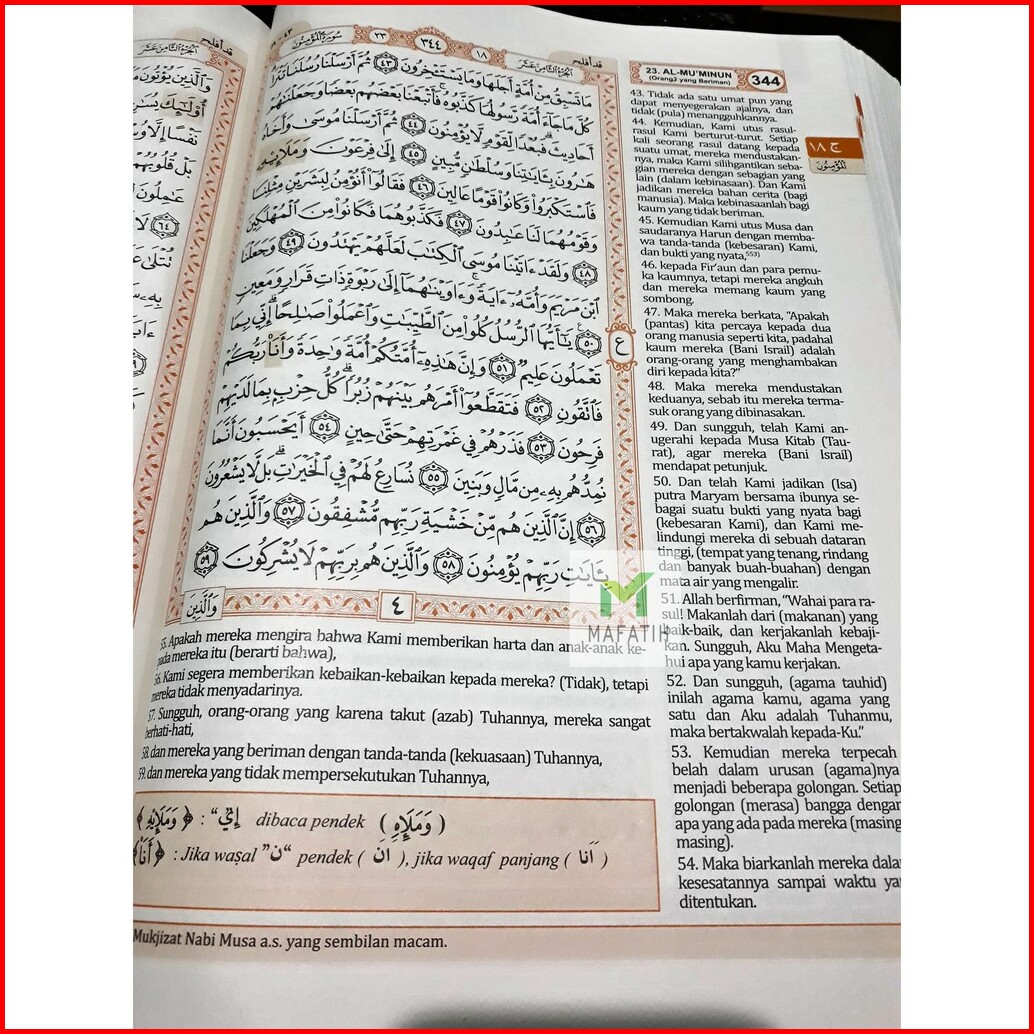 قد أفلح
الجزء الثامن عشر
سورة المؤمنون
٢٣
٣٤٤
١٨
الجزء الثامن عشر
قد أفلح
مَا تَسْبِقُ مِنْ أُمَّةٍ أَجَلَهَا وَمَا يَسْتَـْٔخِرُونَ ٤٣ ثُمَّ أَرْسَلْنَا رُسُلَنَا تَتْرَا
كُلَّ مَا جَاءَ أُمَّةً رَّسُولُهَا كَذَّبُوهُ فَأَتْبَعْنَا بَعْضَهُم بَعْضًا وَجَعَلْنَٰهُمْ
أَحَادِيثَ فَبُعْدًا لِّقَوْمٍ لَّا يُؤْمِنُونَ ٤٤ ثُمَّ أَرْسَلْنَا مُوسَىٰ وَأَخَاهُ
هَٰرُونَ بِـَٔايَٰتِنَا وَسُلْطَٰنٍ مُّبِينٍ ٤٥ إِلَىٰ فِرْعَوْنَ وَمَلَإِيْهِۦ
فَٱسْتَكْبَرُوا۟ وَكَانُوا۟ قَوْمًا عَالِينَ ٤٦ فَقَالُوٓا۟ أَنُؤْمِنُ لِبَشَرَيْنِ مِثْلِنَا
وَقَوْمُهُمَا لَنَا عَٰبِدُونَ ٤٧ فَكَذَّبُوهُمَا فَكَانُوا۟ مِنَ ٱلْمُهْلَكِينَ
٤٨ وَلَقَدْ ءَاتَيْنَا مُوسَى ٱلْكِتَٰبَ لَعَلَّهُمْ يَهْتَدُونَ ٤٩ وَجَعَلْنَا
ٱبْنَ مَرْيَمَ وَأُمَّهُۥٓ ءَايَةً وَءَاوَيْنَٰهُمَآ إِلَىٰ رَبْوَةٍ ذَاتِ قَرَارٍ وَمَعِينٍ
٥٠ يَٰٓأَيُّهَا ٱلرُّسُلُ كُلُوا۟ مِنَ ٱلطَّيِّبَٰتِ وَٱعْمَلُوا۟ صَٰلِحًا إِنِّى بِمَا
تَعْمَلُونَ عَلِيمٌ ٥١ وَإِنَّ هَٰذِهِۦٓ أُمَّتُكُمْ أُمَّةً وَٰحِدَةً وَأَنَا۠ رَبُّكُمْ
فَٱتَّقُونِ ٥٢ فَتَقَطَّعُوٓا۟ أَمْرَهُم بَيْنَهُمْ زُبُرًا كُلُّ حِزْبٍۭ بِمَا لَدَيْهِمْ
فَرِحُونَ ٥٣ فَذَرْهُمْ فِى غَمْرَتِهِمْ حَتَّىٰ حِينٍ ٥٤ أَيَحْسَبُونَ أَنَّمَا
نُمِدُّهُم بِهِۦ مِن مَّالٍ وَبَنِينَ ٥٥ نُسَارِعُ لَهُمْ فِى ٱلْخَيْرَٰتِ بَل لَّا يَشْعُرُونَ
٥٦ إِنَّ ٱلَّذِينَ هُم مِّنْ خَشْيَةِ رَبِّهِم مُّشْفِقُونَ ٥٧ وَٱلَّذِينَ هُم
بِـَٔايَٰتِ رَبِّهِمْ يُؤْمِنُونَ ٥٨ وَٱلَّذِينَ هُم بِرَبِّهِمْ لَا يُشْرِكُونَ ٥٩
ع
وَالَّذِينَ
٤
23. AL-MU'MINUN
(Orang2 yang Beriman)
344
ج ١٨
المؤمنون
43. Tidak ada satu umat pun yang
dapat menyegerakan ajalnya, dan
tidak (pula) menangguhkannya.
44. Kemudian, Kami utus rasul-
rasul Kami berturut-turut. Setiap
kali seorang rasul datang kepada
suatu umat, mereka mendustakan-
nya, maka Kami silihgantikan seba-
gian mereka dengan sebagian yang
lain (dalam kebinasaan). Dan Kami
jadikan mereka bahan cerita (bagi
manusia). Maka kebinasaanlah bagi
kaum yang tidak beriman.
45. Kemudian Kami utus Musa dan
saudaranya Harun dengan memba-
wa tanda-tanda (kebesaran) Kami,
dan bukti yang nyata,553)
46. kepada Fir'aun dan para pemu-
ka kaumnya, tetapi mereka angkuh
dan mereka memang kaum yang
sombong.
47. Maka mereka berkata, "Apakah
(pantas) kita percaya kepada dua
orang manusia seperti kita, padahal
kaum mereka (Bani Israil) adalah
orang-orang yang menghambakan
diri kepada kita?"
48. Maka mereka mendustakan
keduanya, sebab itu mereka terma-
suk orang yang dibinasakan.
49. Dan sungguh, telah Kami an-
ugerahi kepada Musa Kitab (Tau-
rat), agar mereka (Bani Israil)
mendapat petunjuk.
50. Dan telah Kami jadikan (Isa)
putra Maryam bersama ibunya se-
bagai suatu bukti yang nyata bagi
(kebesaran Kami), dan Kami me-
lindungi mereka di sebuah dataran
tinggi, (tempat yang tenang, rindang
dan banyak buah-buahan) dengan
mata air yang mengalir.
51. Allah berfirman, "Wahai para ra-
sul! Makanlah dari (makanan) yang
baik-baik, dan kerjakanlah kebaji-
kan. Sungguh, Aku Maha Mengeta-
hui apa yang kamu kerjakan.
52. Dan sungguh, (agama tauhid)
inilah agama kamu, agama yang
satu dan Aku adalah Tuhanmu,
maka bertakwalah kepada-Ku."
53. Kemudian mereka terpecah
belah dalam urusan (agama)nya
menjadi beberapa golongan. Setiap
golongan (merasa) bangga dengan
apa yang ada pada mereka (masing
masing).
54. Maka biarkanlah mereka dala
kesesatannya sampai waktu ya
ditentukan.
MAFATIH
55. Apakah mereka mengira bahwa Kami memberikan harta dan anak-anak ke-
pada mereka itu (berarti bahwa),
56. Kami segera memberikan kebaikan-kebaikan kepada mereka? (Tidak), tetapi
mereka tidak menyadarinya.
57. Sungguh, orang-orang yang karena takut (azab) Tuhannya, mereka sangat
berhati-hati,
58. dan mereka yang beriman dengan tanda-tanda (kekuasaan) Tuhannya,
59. dan mereka yang tidak mempersekutukan Tuhannya,
﴿ وَمَلَإِيْهِ ﴾ : “ إِيْ ” dibaca pendek ( وَمَلَإِهِ )
﴿ أَنَا۠ ﴾ : Jika waṣal ” ن “ pendek ( اَنَ ), jika waqaf panjang ( اَنَا )
Mukjizat Nabi Musa a.s. yang sembilan macam.